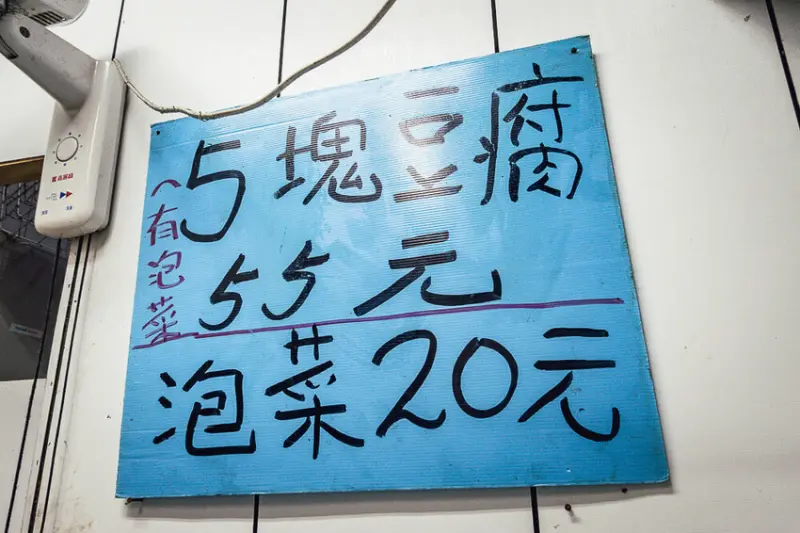 5塊豆腐
55元
(有泡菜
泡菜20元